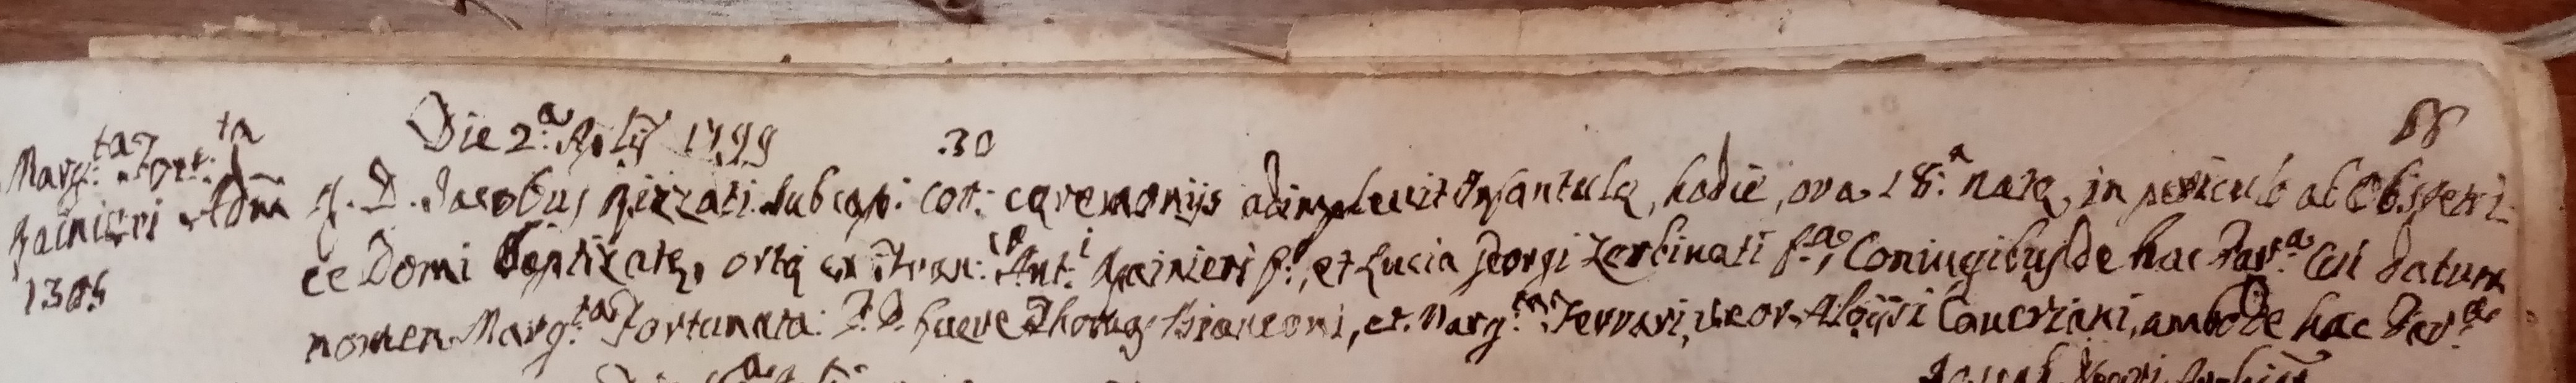 Die 2.a Aplis 1799 30
Marg.ta Fort.ta
Rainieri Adm
1385
A. D. Jacobus Pizzati Subcap: cot. cęremonijs adimplevit Infantulę, hodie, ora 18.a natę, in periculo ab Obstetri-
ce Domi Baptizatę, ortę ex Fran: Ant.i Rainieri f.o, et Lucia Georgi Zerbinati f.a, Coniugibus de hac Par.a Cui datum
nomen Marg.ta Fortunata: P.P. fuere Thomas Bianconi, et Marg.ta Ferrari, uxor Aloijsi Caveriani, ambo De hac Par.a